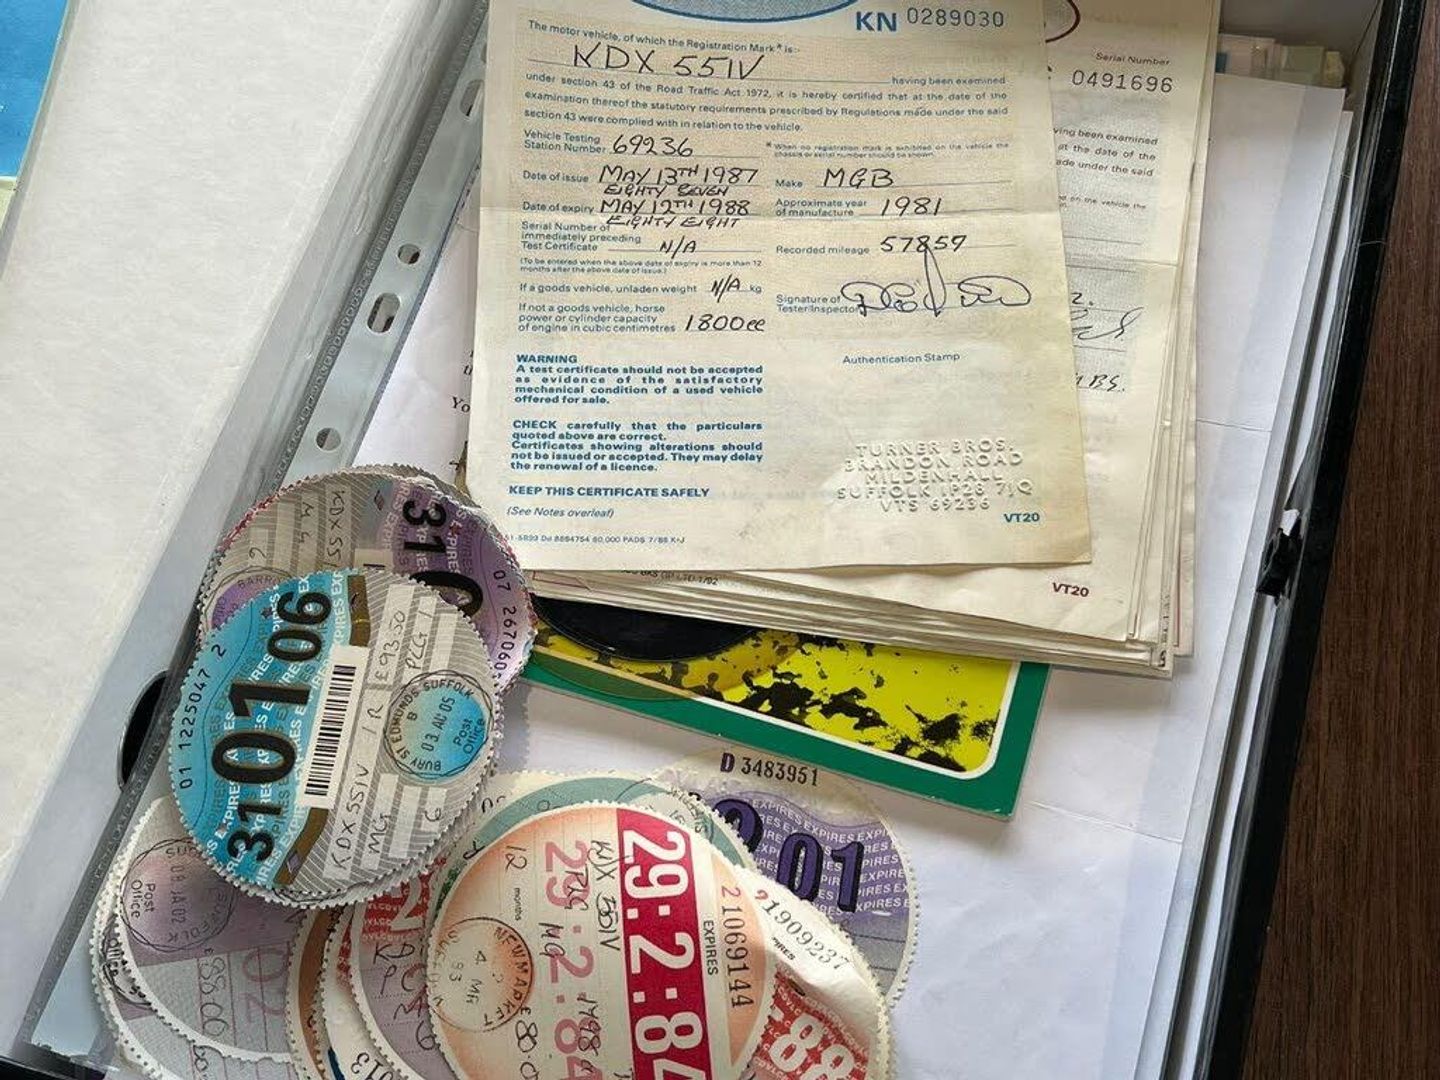 KN 0289030
The motor vehicle, of which the Registration Mark * is:-
KDX 551V
having been examined
under section 43 of the Road Traffic Act 1972, it is hereby certified that at the date of the
examination thereof the statutory requirements prescribed by Regulations made under the said
section 43 were complied with in relation to the vehicle.
Vehicle Testing
Station Number 69236
* When no registration mark is exhibited on the vehicle the
chassis or serial number should be shown.
Date of issue MAY 13TH 1987
EIGHTY SEVEN
Make MGB
Date of expiry MAY 12TH 1988
EIGHTY EIGHT
Approximate year
of manufacture 1981
Serial Number of
immediately preceding
Test Certificate N/A
Recorded mileage 57857
(To be entered when the above date of expiry is more than 12
months after the above date of issue.)
If a goods vehicle, unladen weight N/A kg
Signature of
Tester/Inspector
If not a goods vehicle, horse
power or cylinder capacity
of engine in cubic centimetres 1800cc
WARNING
A test certificate should not be accepted
as evidence of the satisfactory
mechanical condition of a used vehicle
offered for sale.
Authentication Stamp
CHECK carefully that the particulars
quoted above are correct.
Certificates showing alterations should
not be issued or accepted. They may delay
the renewal of a licence.
TURNER BROS.
BRANDON ROAD
MILDENHALL
SUFFOLK IP28 7JQ
VTS 69236
KEEP THIS CERTIFICATE SAFELY
(See Notes overleaf)
VT20
Serial Number
0491696
ving been examined
at the date of the
ade under the said
on the vehicle the
VT20
Yo
KDX 551
MG
31
07 267060
01 1225047 2
31 01 06
EXPIRES
£93.50
PLG
KDX 551V
MG
BURY ST EDMUNDS SUFFOLK
B
03 AU 05
Post
Office
D 3483951
01
EXPIRES EXPIRES EXPIRES
Post
Office
JA 02
88.00
02
29:2:84
EXPIRES
21069144
KDX 551V
12 months
PLG
MG
29:2:84
1798
NEWMARKET
4 MR
83
80.0
21909237
88
013